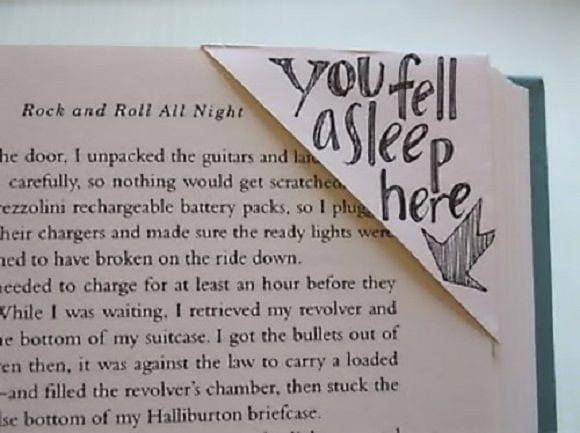 you fell
asleep
here
Rock and Roll All Night
he door, I unpacked the guitars and
carefully, so nothing would get scratched,
ezzolini rechargeable battery packs, so I plug
heir chargers and made sure the ready lights were
ned to have broken on the ride down.
needed to charge for at least an hour before they
While I was waiting, I retrieved my revolver and
e bottom of my suitcase. I got the bullets out of
en then, it was against the law to carry a loaded
—and filled the revolver's chamber, then stuck the
lse bottom of my Halliburton briefcase.